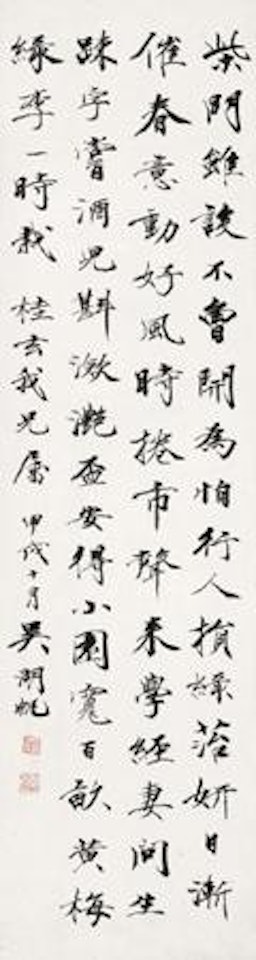 柴門雖設不曾開為怕行人損綠落妍日漸
催春意動好風時捲市聲來學經妻問生
踈字嘗酒兒斟潋灩盃安得小園寬百畝黃梅
綠李一時栽 桂玄我兄屬 甲戌十月 吳湖帆